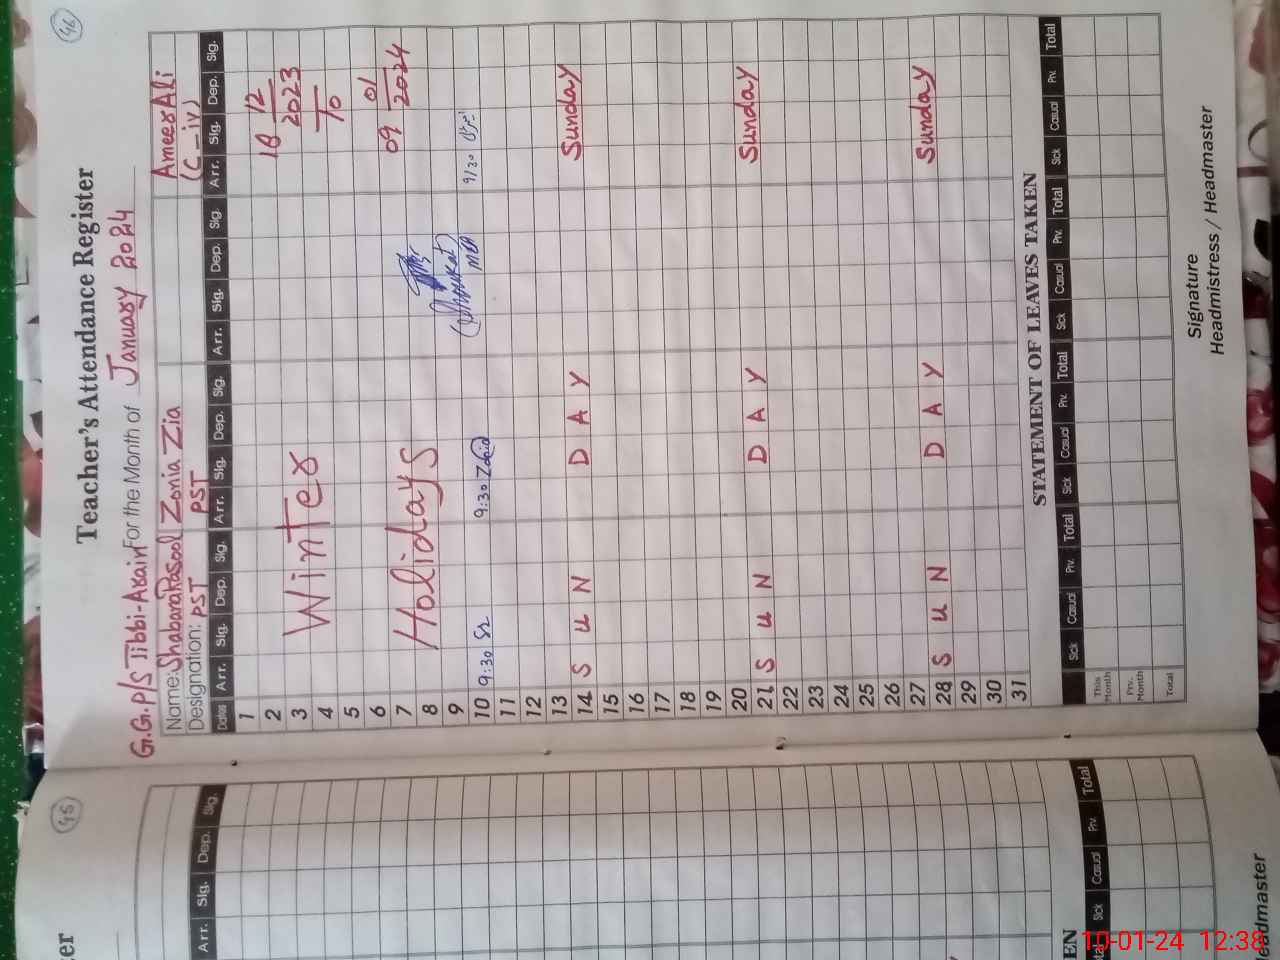 46
Teacher's Attendance Register
G.G.P/S Tibbi-Arain For the Month of January 2024
Name: Shabana Rasool Zonia Zia Ameer Ali
Designation: PST PST (C-iv)
Dates Arr. Sig. Dep. Sig. Arr. Sig. Dep. Sig. Arr. Sig. Dep. Sig. Arr. Sig. Dep. Sig.
1
2 18 12
3 Winter 2023
4 To
5
6 09 01
7 Holidays 2024
8
9
10 9:30 9:30 Zonia 9/30
11
12
13
14 S U N D A Y Sunday
15
16
17
18
19
20
21 S U N D A Y Sunday
22
23
24
25
26
27
28 S U N D A Y Sunday
29
30
31
STATEMENT OF LEAVES TAKEN
Sick Casual Prv. Total Sick Casual Prv. Total Sick Casual Prv. Total Sick Casual Prv. Total
This Month
Prv. Month
Total
Signature
Headmistress / Headmaster
45
ter
Arr. Sig. Dep. Sig.
EN
tal Sick Casual Prv. Total
leadmaster
10-01-24 12:38